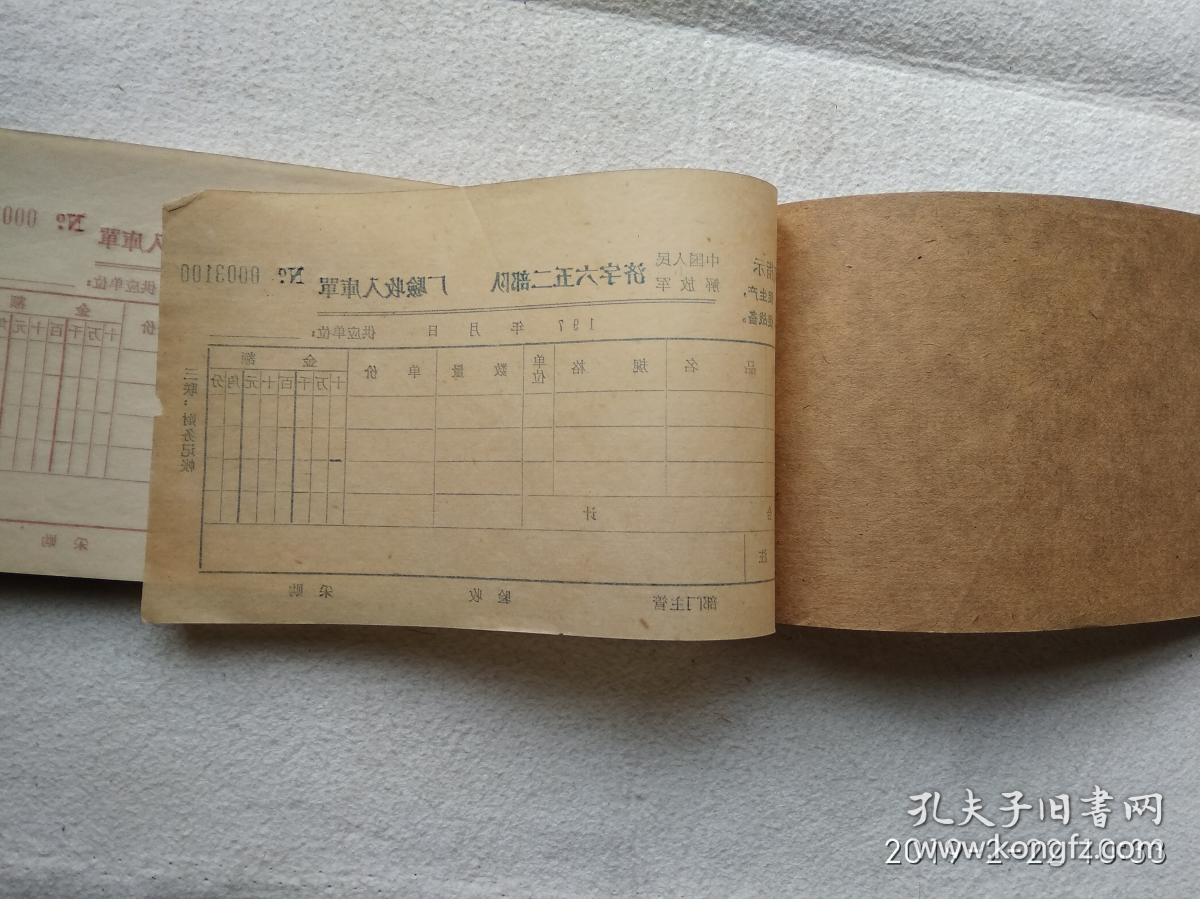 指示
生产，
战备。
中国人民
解放军
济字六五二部队 厂驗收入庫單 № 0003100
197 年 月 日 供应单位：
品 名 规 格 单位 数 量 单 价 金 额
十万千百十元角分
合 计
注
部门主管 验收 采购
三联：财务记帐
入庫單 № 000
供应单位：
价 金 额
十万千百十元角
采购
孔夫子旧书网
www.kongfz.com